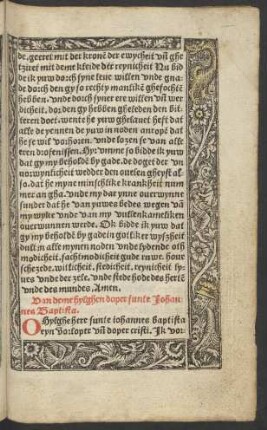 de. geeret mit der kronē der ewycheit vn̄ ghe
tziret mit deme kleide der reynicheit Nu bid
de ik yuw dorch syne leue willen vnde gna-
de dorch den gy so rechty
hebben. vnde dorch syner ere willen vn̄ wer
dicheit. dor den gy hebben gheleden den bit-
teren doet. wente he yuw ghelauet heft dat
alle de yennen de yuw in noden antopē dat
he se wil vorhoren. vnde losen se van alle-
ren drofenissen. Hyr vmme so bidde ik yuw
dat gy my beholdē by gade. de doget der vn
vorwynlicheit wedder den quelen gheyst al
so. dat he myne mynschlike krankheit num
mer an gha. vnde my dar ynne ouerwynne
sunder dat he van yuwes bedes wegen vā
my wyke vnde van my
ouerwunnen werde. Ok bidde ik yuw dat
gy my beholdē by gade in gotliker wysheit
dult in alle mynen noden vnde lydende oth
modicheit. sachtmodicheit gude ruwe. houe
sche zede. mitlicheit. stedicheit. reynicheit ly-
ues vnde der zele. vnde frede hode des hertē
vnde des mundes, Amen.
Van deme hylghen doper sunte Johan
nes Baptista.
O Hylghe here sunte iohannes baptista
eyn vorloper vn̄ doper cristi. Ik vor-